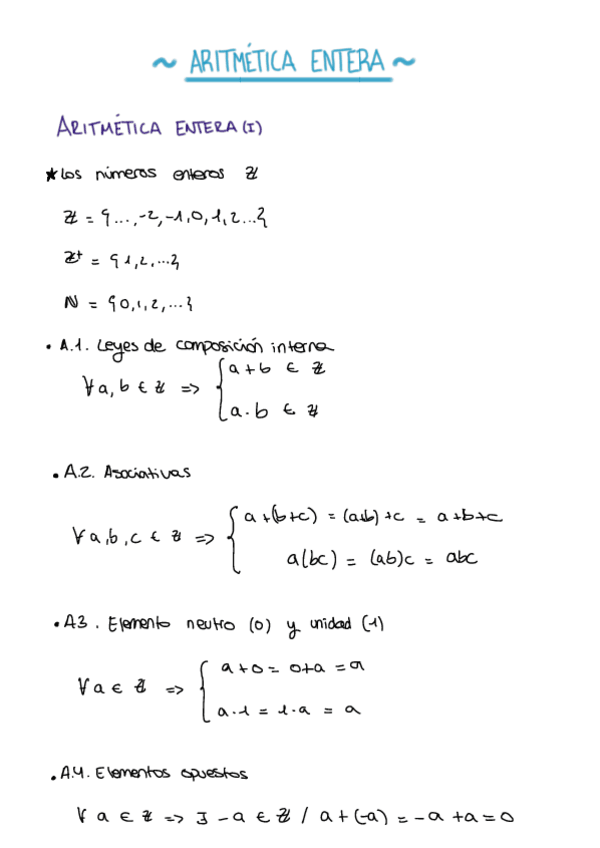 ~ ARITMÉTICA ENTERA ~
ARITMÉTICA ENTERA (I)
★ Los números enteros ℤ
ℤ = {...,-2,-1,0,1,2...}
ℤ⁺ = {1,2,...}
ℕ = {0,1,2,...}
• A.1. Leyes de composición interna
∀ a, b ∈ ℤ => { a + b ∈ ℤ
a · b ∈ ℤ
• A.2. Asociativas
∀ a, b, c ∈ ℤ => { a + (b+c) = (a+b) + c = a+b+c
a(bc) = (ab)c = abc
• A3. Elemento neutro (0) y unidad (1)
∀ a ∈ ℤ => { a + 0 = 0+a = a
a · 1 = 1 · a = a
• A.4. Elementos opuestos
∀ a ∈ ℤ => ∃ -a ∈ ℤ / a + (-a) = -a + a = 0